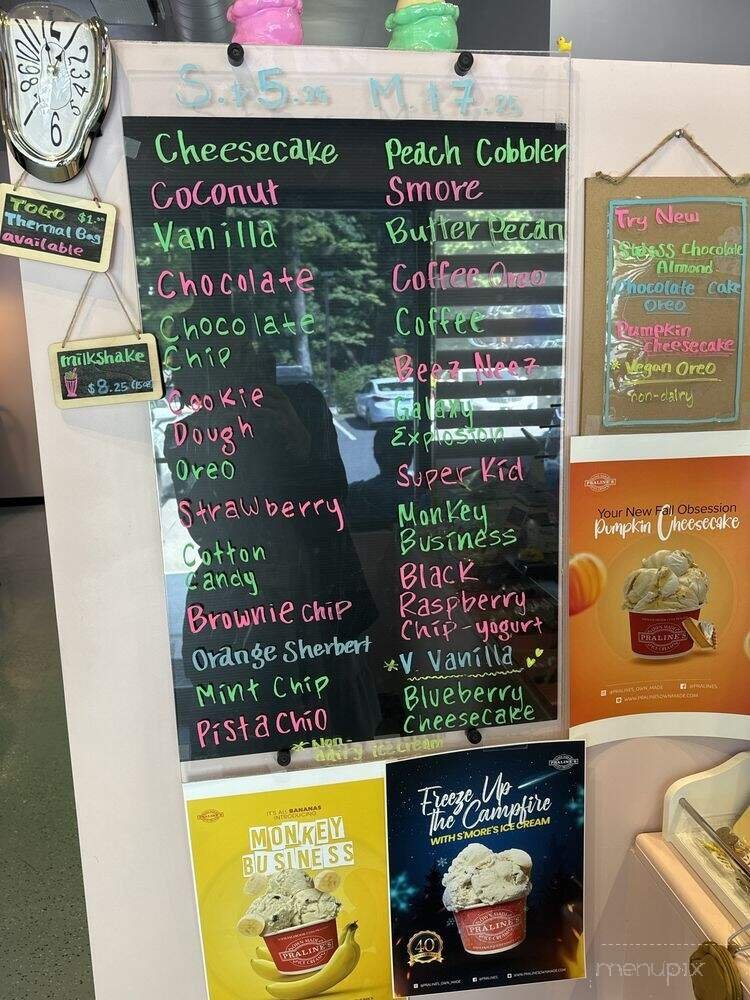 S. $5.25 M. $7.25
Cheesecake
Coconut
Vanilla
Chocolate
Chocolate
Chip
Cookie
Dough
Oreo
Strawberry
Cotton
Candy
Brownie chip
Orange Sherbert
Mint Chip
Pistachio
Peach Cobbler
Smore
Butter Pecan
Coffee Oreo
Coffee
Beez Neez
Galaxy
Explosion
Super Kid
Monkey
Business
Black
Raspberry
Chip-yogurt
*V Vanilla
Blueberry
Cheesecake
* Non-
dairy ice cream
TOGO $1.00
Thermal Bag
available
milkshake
$8.25
Try New
Chocolate
Almond
Chocolate cake
Oreo
Pumpkin
cheesecake
* Vegan Oreo
non-dairy
PRALINE'S
Your New Fall Obsession
Pumpkin Cheesecake
PRALINE'S
@PRALINES_OWN_MADE @PRALINES
WWW.PRALINESOWNMADE.COM
PRALINE'S
IT'S ALL BANANAS
INTRODUCING
MONKEY
BUSINESS
PRALINE'S
PRALINE'S
Freeze Up
the Campfire
WITH S'MORE'S ICE CREAM
PRALINE'S
40
menupix